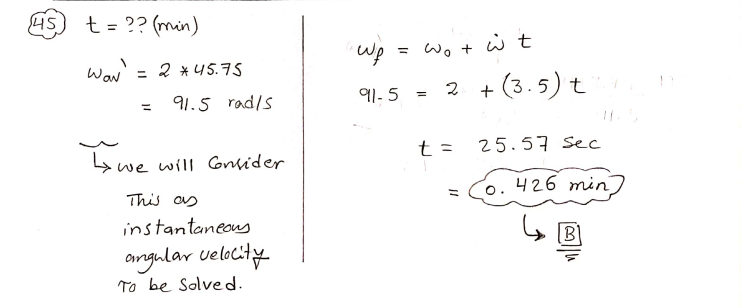 45) t = ?? (min)
wav` = 2 * 45.75
= 91.5 rad/s
↳ we will Consider
This as
instantaneous
angular velocity
To be Solved.
wf = wo + ẇ t
91.5 = 2 + (3.5) t
t = 25.57 Sec
= 0.426 min
↳ B